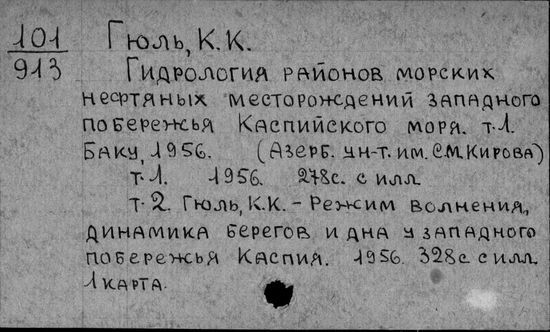 101 Гюль, К.К.
913 Гидрология районов морских
нефтяных месторождений западного
побережья Каспийского моря. т.1.
Баку, 1956. (Азерб. ун-т. им. С.М. Кирова)
т.1. 1956. 278с. с илл.
т.2. Гюль, К.К. - Режим волнения,
динамика берегов и дна у западного
побережья Каспия. 1956. 328с с илл.
1 карта.